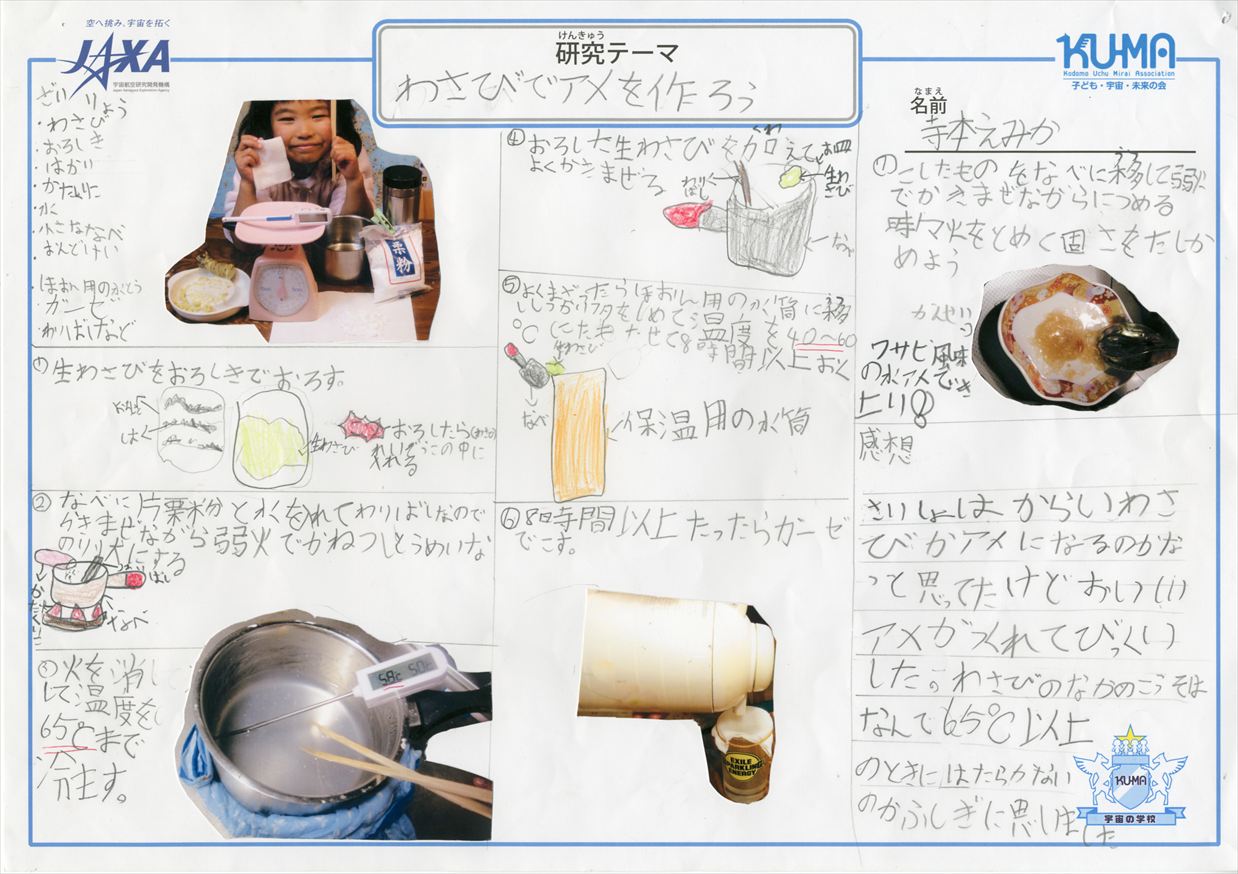 空へ挑み、宇宙を拓く
JAXA
宇宙航空研究開発機構
Japan Aerospace Exploration Agency
けんきゅう
研究テーマ
わさびでアメを作ろう
KU-MA
Kodomo Uchu Mirai Association
子ども・宇宙・未来の会
なまえ
名前
寺本えみか
ざいりょう
・わさび
・おろしき
・はかり
・かたくりこ
・水
・小さななべ
・おんどけい
・ほおん用のすいとう
ガーゼ
・わりばしなど
粟粉
①生わさびをおろしきでおろす。
はし
生わさび
おろしたら
この中に
入れる
②なべに片栗粉と水を入れてわりばしなので
かきまぜながら弱火でかねつしとうめいな
のり状にする
わりばし
なべ
かたくりこ
③火を消し
して温度を
65℃まで
冷ます。
58℃
④おろした生わさびを加えて
くわ
よくかきまぜる
お皿
生わさび
わりばし
なべ
⑤よくまざったらほおん用の水筒に移
うつ
ししっかりフタをしめて温度を40〜60
℃にたもたせて8時間以上おく
生わさび
なべ
保温用の水筒
⑥8時間以上たったらガーゼ
でこす。
EXILE
SPARKLING
ENERGY
⑦こしたものをなべに移して弱火
うつ
でかきまぜながらにつめる
時々火をとめて固さをたしか
めよう
かんせいっ
ワサビ風味
の水アメでき
上り⑧
感想
さいしょは からいわさ
びがアメになるのかな
って思ってたけどおいしい
アメがつくれてびっくり
した。わさびのなかのこうそは
なんで65℃以上
のときにはたらかない
のかふしぎに思いました
KU-MA
宇宙の学校